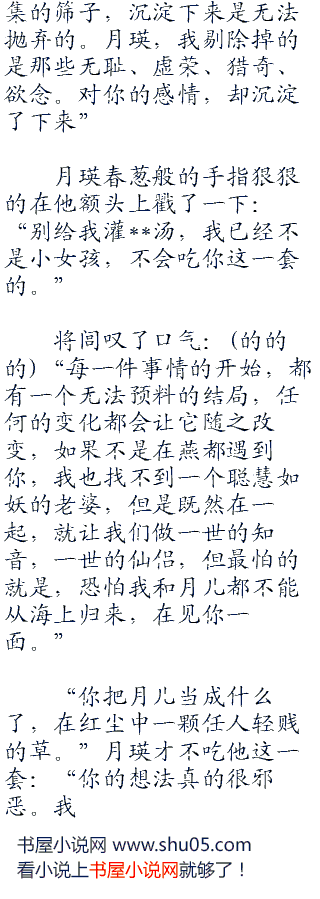 集的筛子，沉淀下来是无法
抛弃的。月瑛，我剔除掉的
是那些无耻、虚荣、猎奇、
欲念。对你的感情，却沉淀
了下来”
月瑛春葱般的手指狠狠
的在他额头上戳了一下：
“别给我灌**汤，我已经不
是小女孩，不会吃你这一套
的。”
将闾叹了口气：(的的
的)“每一件事情的开始，都
有一个无法预料的结局，任
何的变化都会让它随之改
变，如果不是在燕都遇到
你，我也找不到一个聪慧如
妖的老婆，但是既然在一
起，就让我们做一世的知
音，一世的仙侣，但最怕的
就是，恐怕我和月儿都不能
从海上归来，在见你一
面。”
“你把月儿当成什么
了，在红尘中一颗任人轻贱
的草。”月瑛才不吃他这一
套：“你的想法真的很邪
恶。我
书屋小说网 www.shu05.com
看小说上书屋小说网就够了！